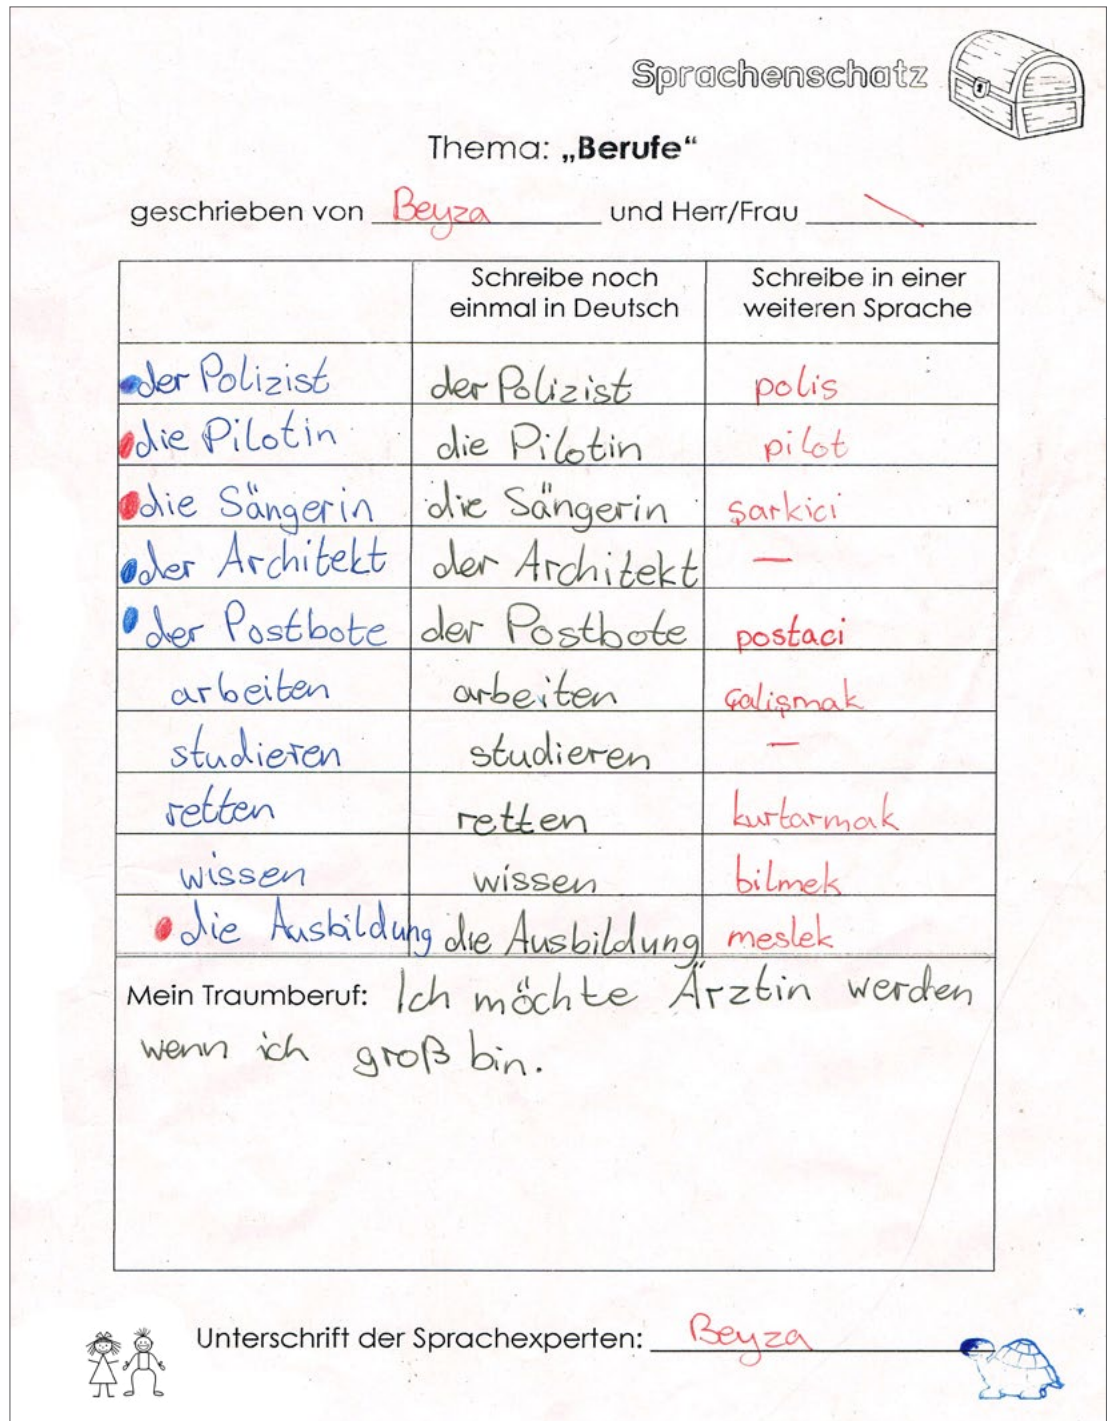 Sprachenschatz
Thema: „Berufe“
geschrieben von Beyza und Herr/Frau
Schreibe noch einmal in Deutsch
Schreibe in einer weiteren Sprache
der Polizist der Polizist polis
die Pilotin die Pilotin pilot
die Sängerin die Sängerin şarkici
der Architekt der Architekt —
der Postbote der Postbote postaci
arbeiten arbeiten çalişmak
studieren studieren —
retten retten kurtarmak
wissen wissen bilmek
die Ausbildung die Ausbildung meslek
Mein Traumberuf: Ich möchte Ärztin werden
wenn ich groß bin.
Unterschrift der Sprachexperten: Beyza